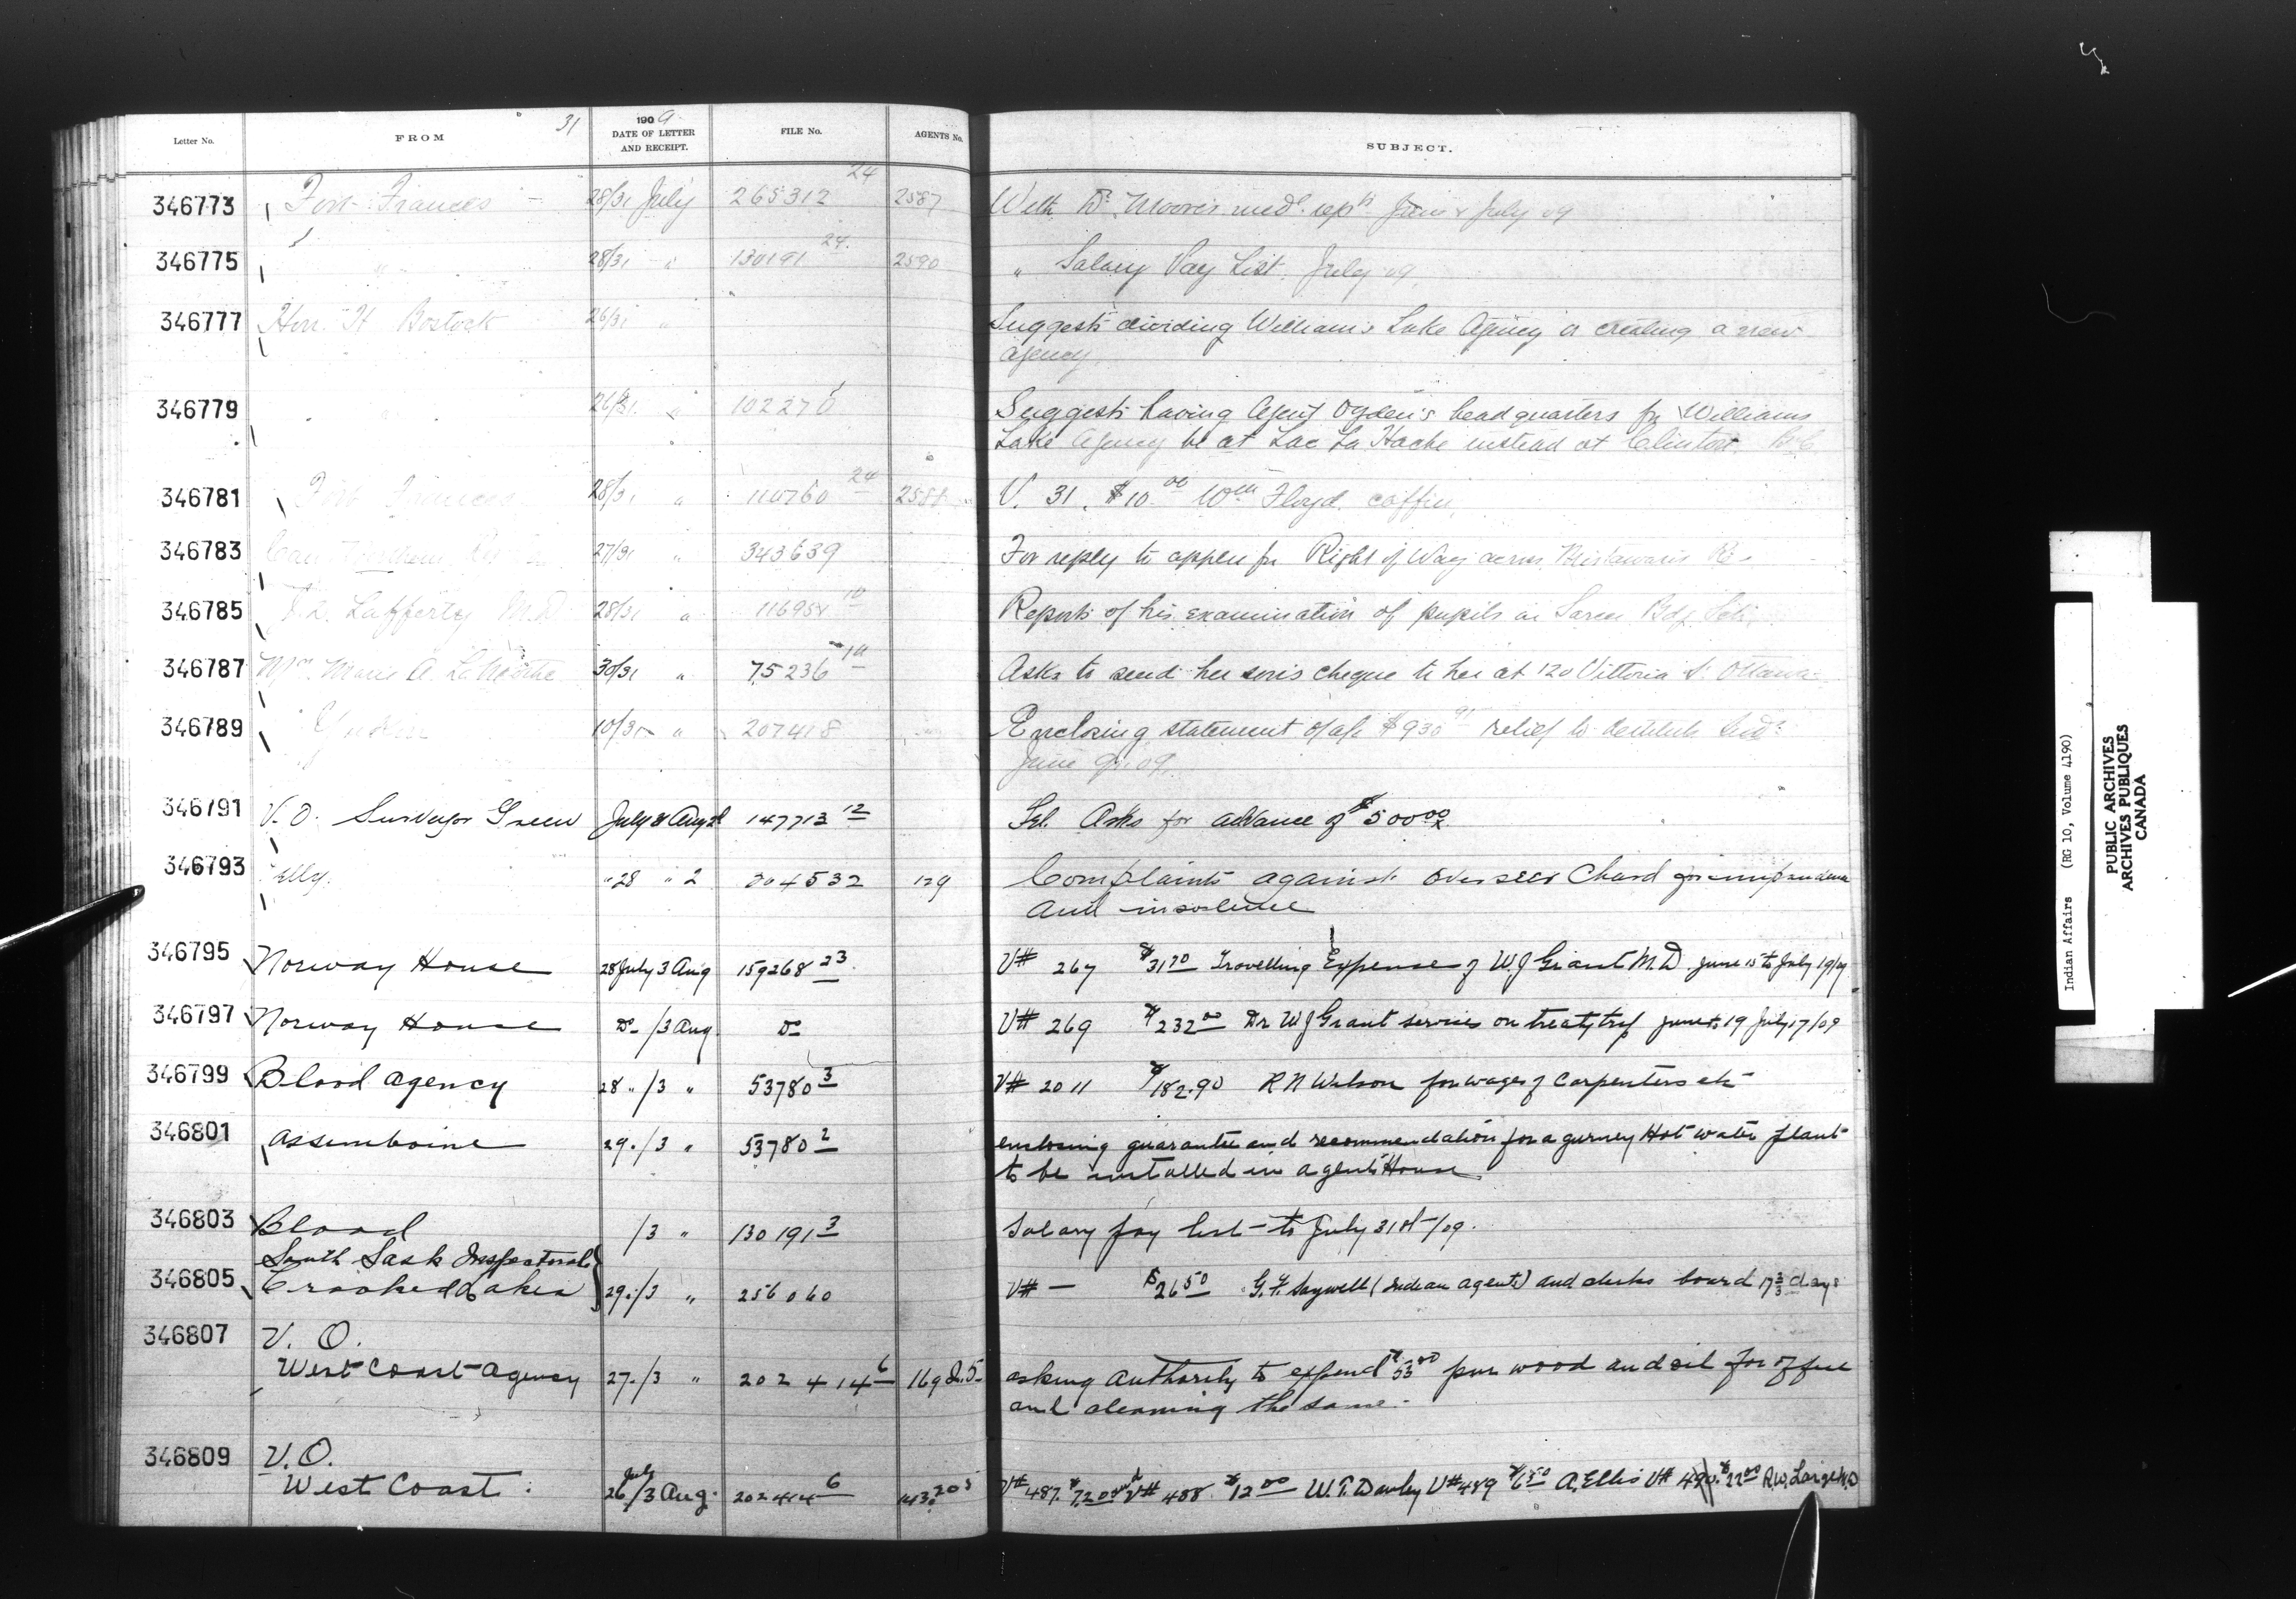 Letter No. FROM 31 1909 DATE OF LETTER AND RECEIPT. FILE No. AGENTS No. SUBJECT.
346773 Fort Frances 28/31 July 265312 24 2587 With Dr. Moore's medl. repts June & July 09
346775 " 28/31 " 130191 24 2590 " Salary Pay List July 09
346777 Hon. H Bostock 26/31 " Suggests dividing William's Lake Agency or creating a new
agency
346779 " 26/31 " 102270 Suggests having Agent Ogden's headquarters for Williams
Lake Agency be at Lac La Hache instead at Clinton B.C
346781 Fort Frances 28/31 " 110760 24 2588 V. 31. $10.00 Wm Floyd. coffin
346783 27/31 " 343639 For reply to appln for Right of Way across
346785 Lafferty M.D 28/31 " 116954 10 Reports of his examination of pupils in Sarcee Bdg. Sch.
346787 Mrs. Marie A. 30/31 " 75236 Asks to send her son's cheque to her at 120 Vittoria St Ottawa
346789 10/31 " 207418 Enclosing statement of a/c $930 91 relief to destitute Inds
June 09
346791 V.O. Surveyor Green July 31 Aug 2 147713 12 Tel. Asks for advance of $500 00
346793 Pelly. " 28 " 2 204532 129 Complaints against overseer Chard for
and insolence
346795 Norway House 28 July 3 Aug 159268 23 V# 267 $31 70 Travelling Expenses of W J Grant M.D. June 15 to July 19/09
346797 Norway House Do /3 Aug. Do V# 269 $232 00 Dr W J Grant services on treaty trip June to 19 July 17/09
346799 Blood Agency 28 " /3 " 53780 3 V# 2011 $182.90 R N Wilson for wages of Carpenters etc
346801 Assiniboine 29./3 " 53780 2 enclosing guarantee and recommendation for a gurney Hot water plant
to be installed in agents House
346803 Blood /3 " 130191 3 Salary pay list to July 31st/09.
South Sask Inspectorate
346805 Crooked Lakes 29./3 " 256060 V# — $26 50 G. F. Saywell (Indian agents) and clerks board 17 3/3 days
346807 V. O.
West Coast Agency 27./3 " 202414 6 169 2.5 asking authority to expend $53 00 pur wood and oil for office
and cleaning the same.
346809 V.O.
West Coast. July 26/3 Aug. 202414 6 V# 487. $7.20 V# 488 $12 00 W. T. Dawley V# 489 $6.50 A. Ellis V# 490. $22 00 R.W. Large M.D
Indian Affairs (RG 10, Volume 4190)
PUBLIC ARCHIVES
ARCHIVES PUBLIQUES
CANADA